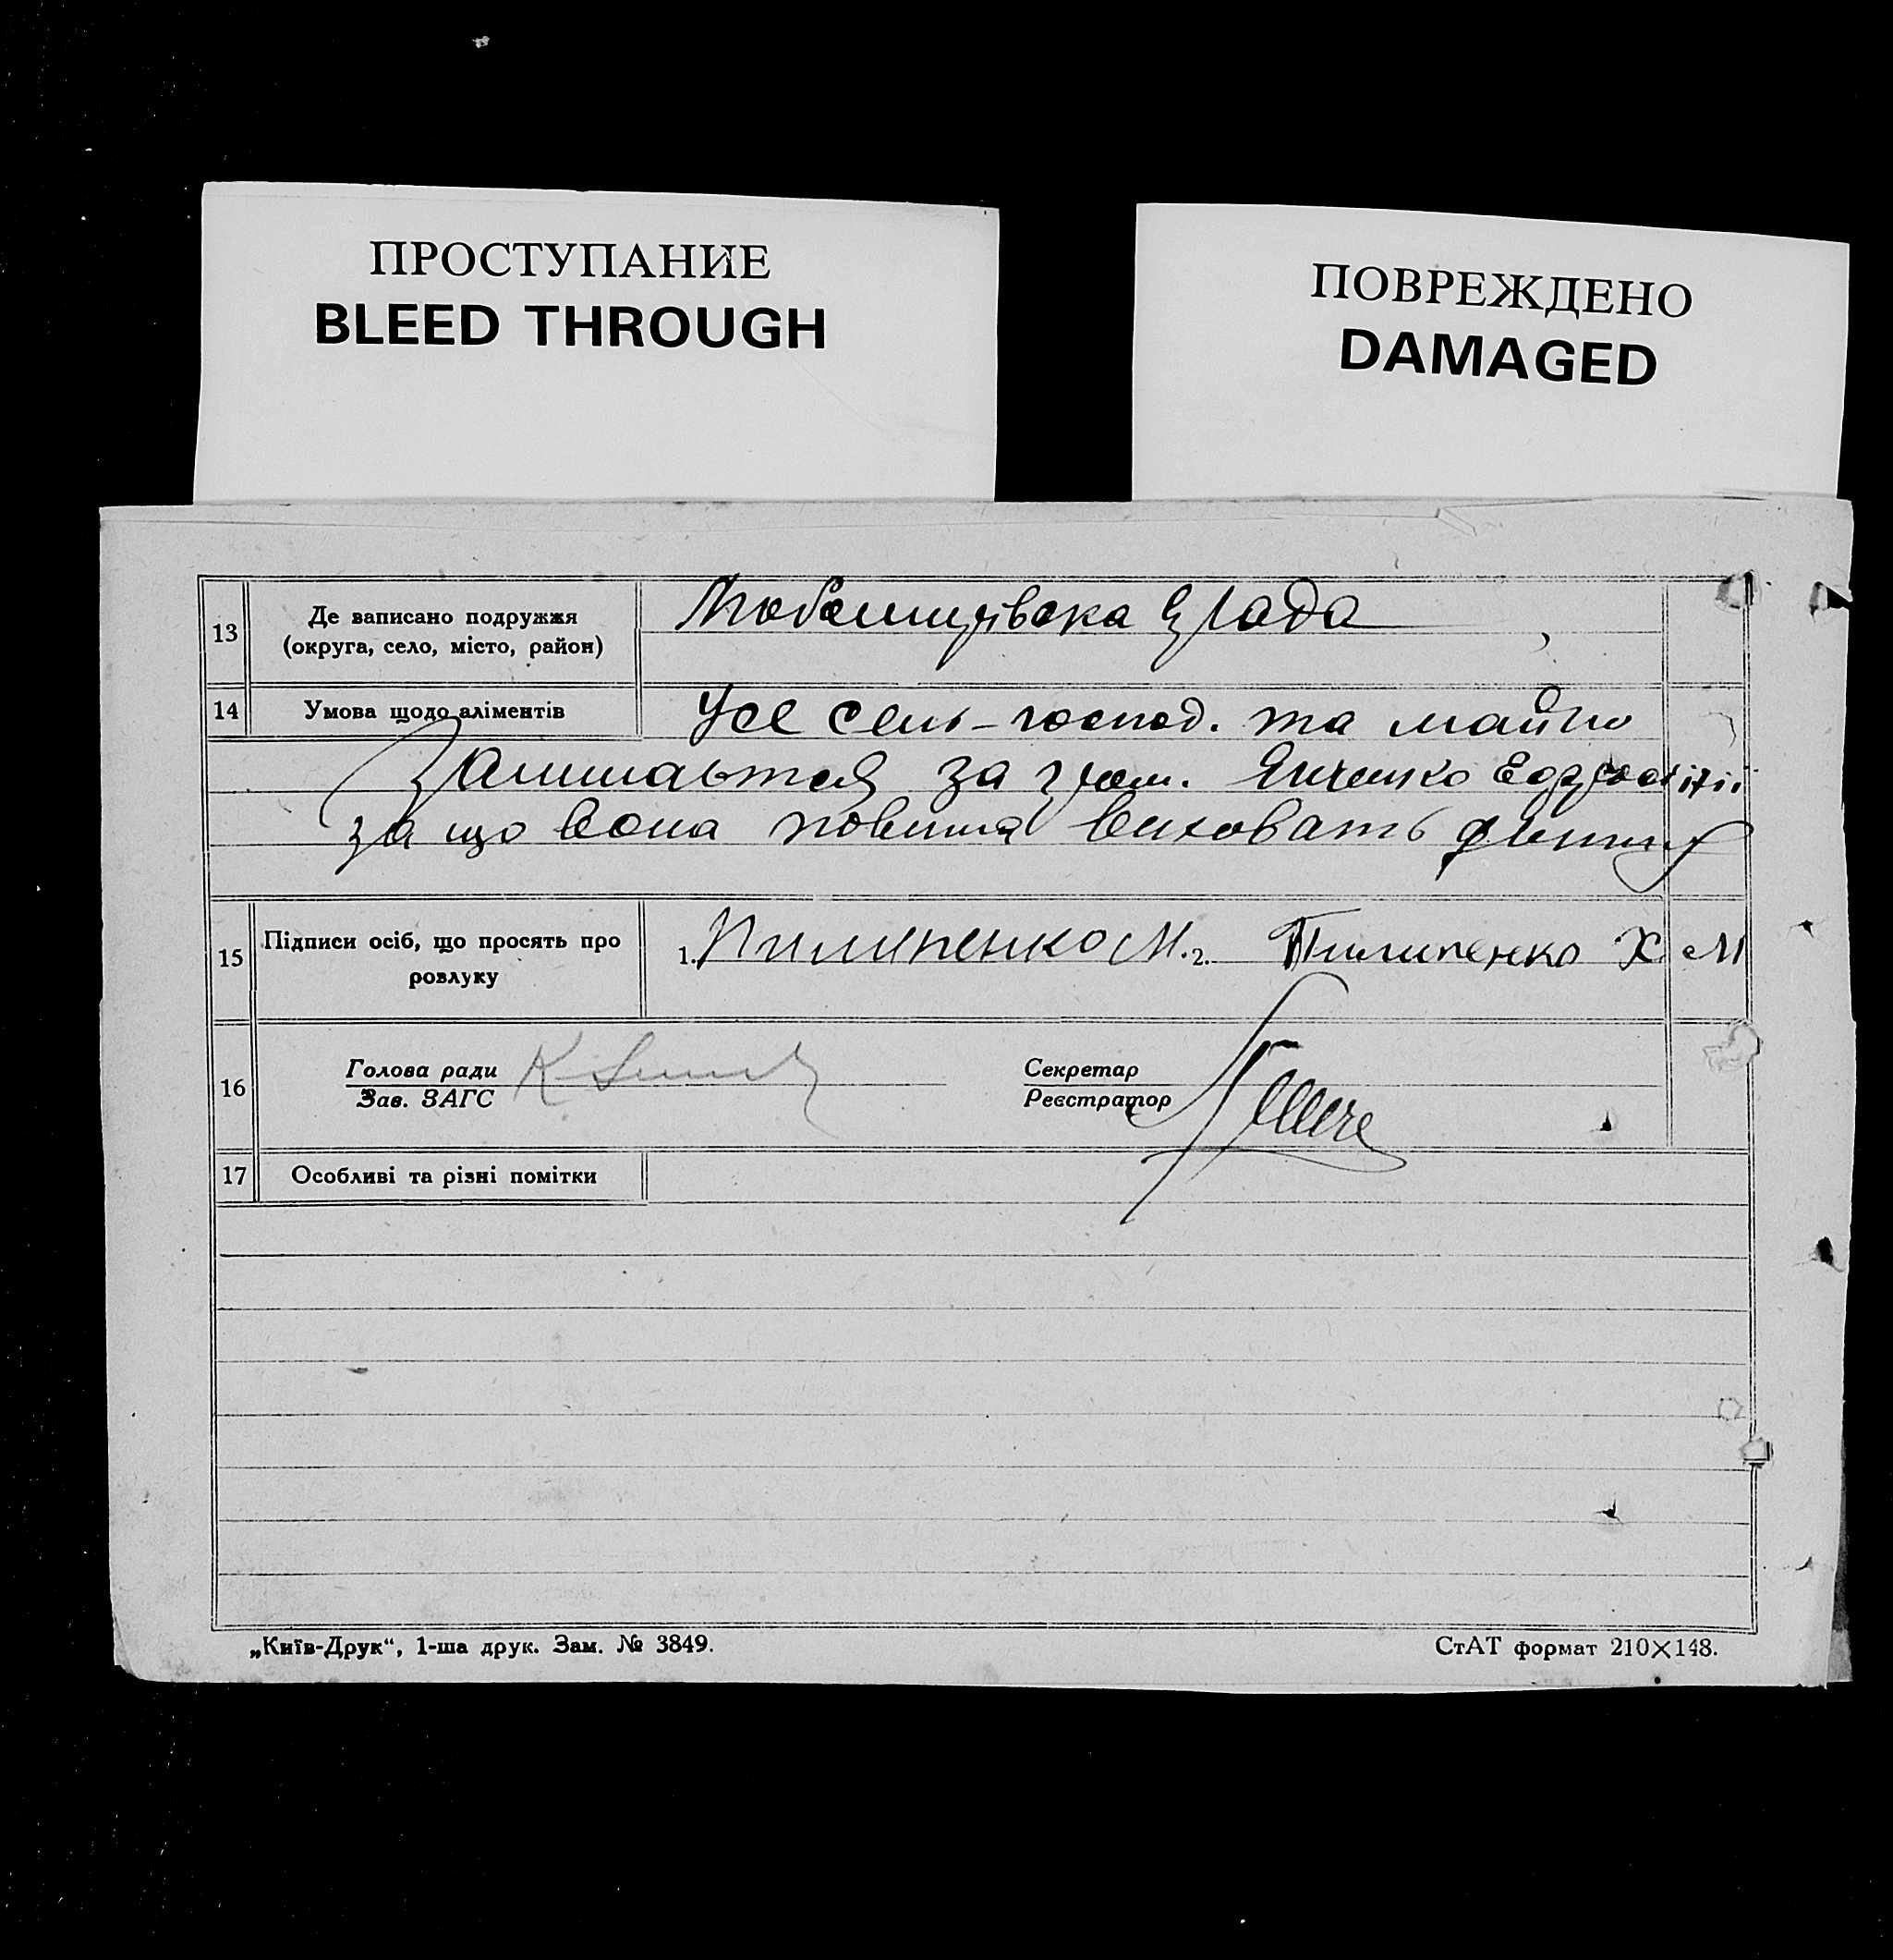 ПРОСТУПАНИЕ
BLEED THROUGH
ПОВРЕЖДЕНО
DAMAGED
13 Де записано подружжя
(округа, село, місто, район)
рада
14 Умова щодо аліментів Усе сель-господ. та майно
залишається за гром. Янченко
за що вона повинна виховать дитину
15 Підписи осіб, що просять про
розлуку
1. Пилипенко М. 2. Пилипенко Х М
16 Голова ради
Зав. ЗАГС
Секретар
Реєстратор
17 Особливі та різні помітки
„Київ-Друк“, 1-ша друк. Зам. № 3849.
СтАТ формат 210×148.